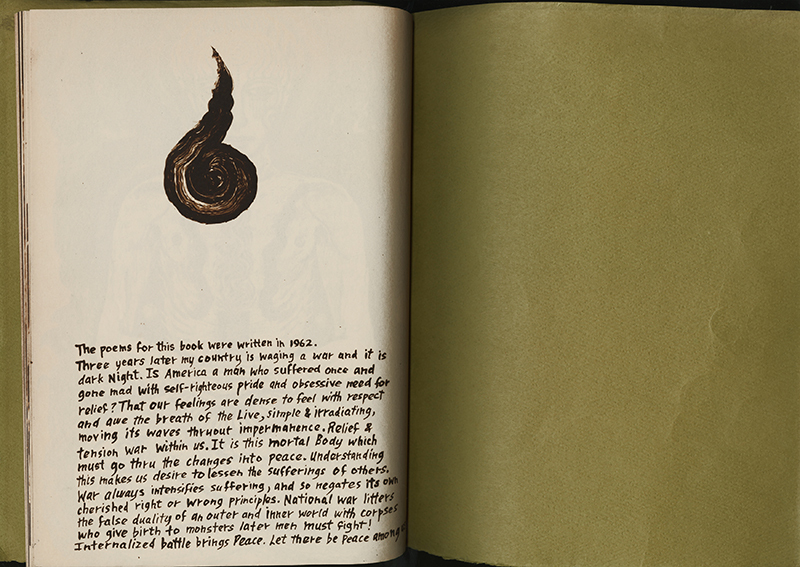 The poems for this book were written in 1962.
Three years later my country is waging a war and it is
dark Night. Is America a man who suffered once and
gone mad with self-righteous pride and obsessive need for
relief? That our feelings are dense to feel with respect
and awe the breath of the Live, simple & irradiating,
moving its waves thruout impermanence. Relief &
tension war within us. It is this mortal Body which
must go thru the changes into peace. Understanding
this makes us desire to lessen the sufferings of others.
War always intensifies suffering, and so negates its own
cherished right or wrong principles. National war litters
the false duality of an outer and inner world with corpses
who give birth to monsters later men must fight!
Internalized battle brings Peace. Let there be peace among